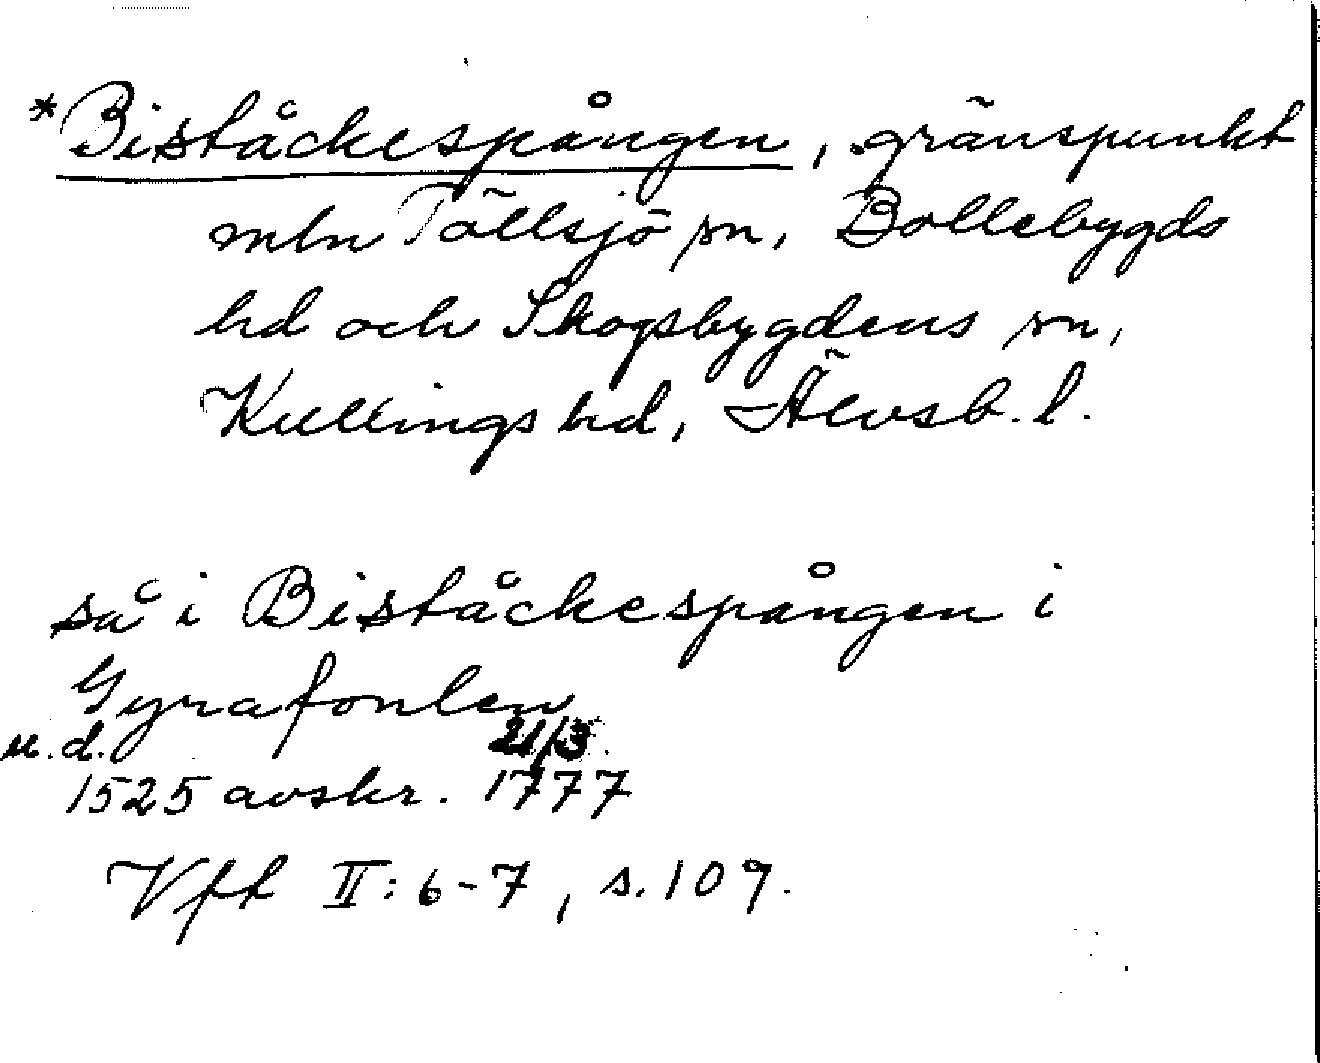 *Biståckespången, gränspunkt
mln Töllsjö sn, Bollebygds
hd och Skogsbygdens sn,
Kullings hd, Älvsb. l.
så i Biståckespången i
Gyrafonlen
u.d. 21/3
1525 avskr. 1777
Vft II: 6-7, s. 109.